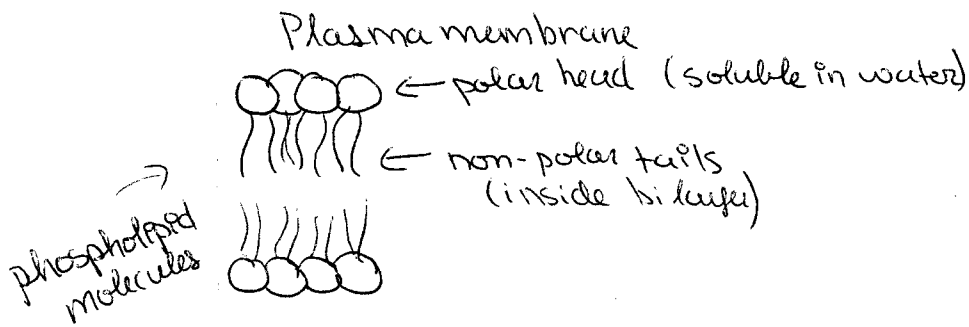 Plasma membrane
← polar head (soluble in water)
← non-polar tails
(inside bilayer)
phospholipid
molecules